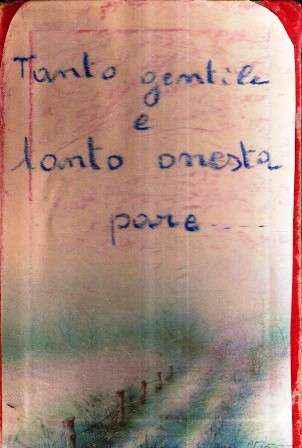 Tanto gentile
e
tanto onesta
pare.......